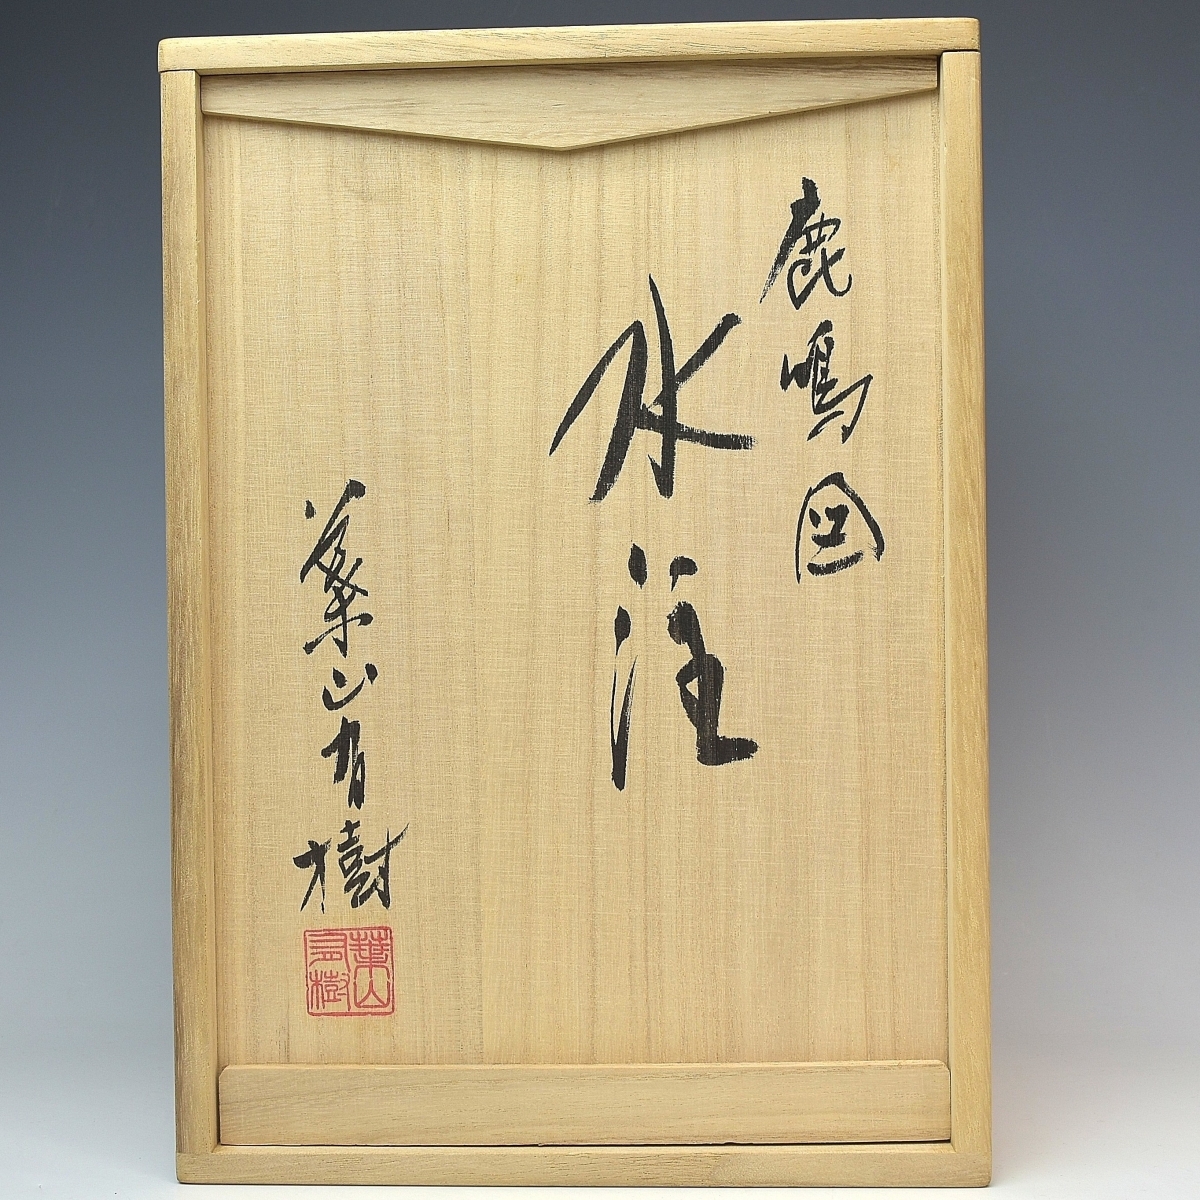 鹿鳴図
水注
葉山有樹
葉山
有樹